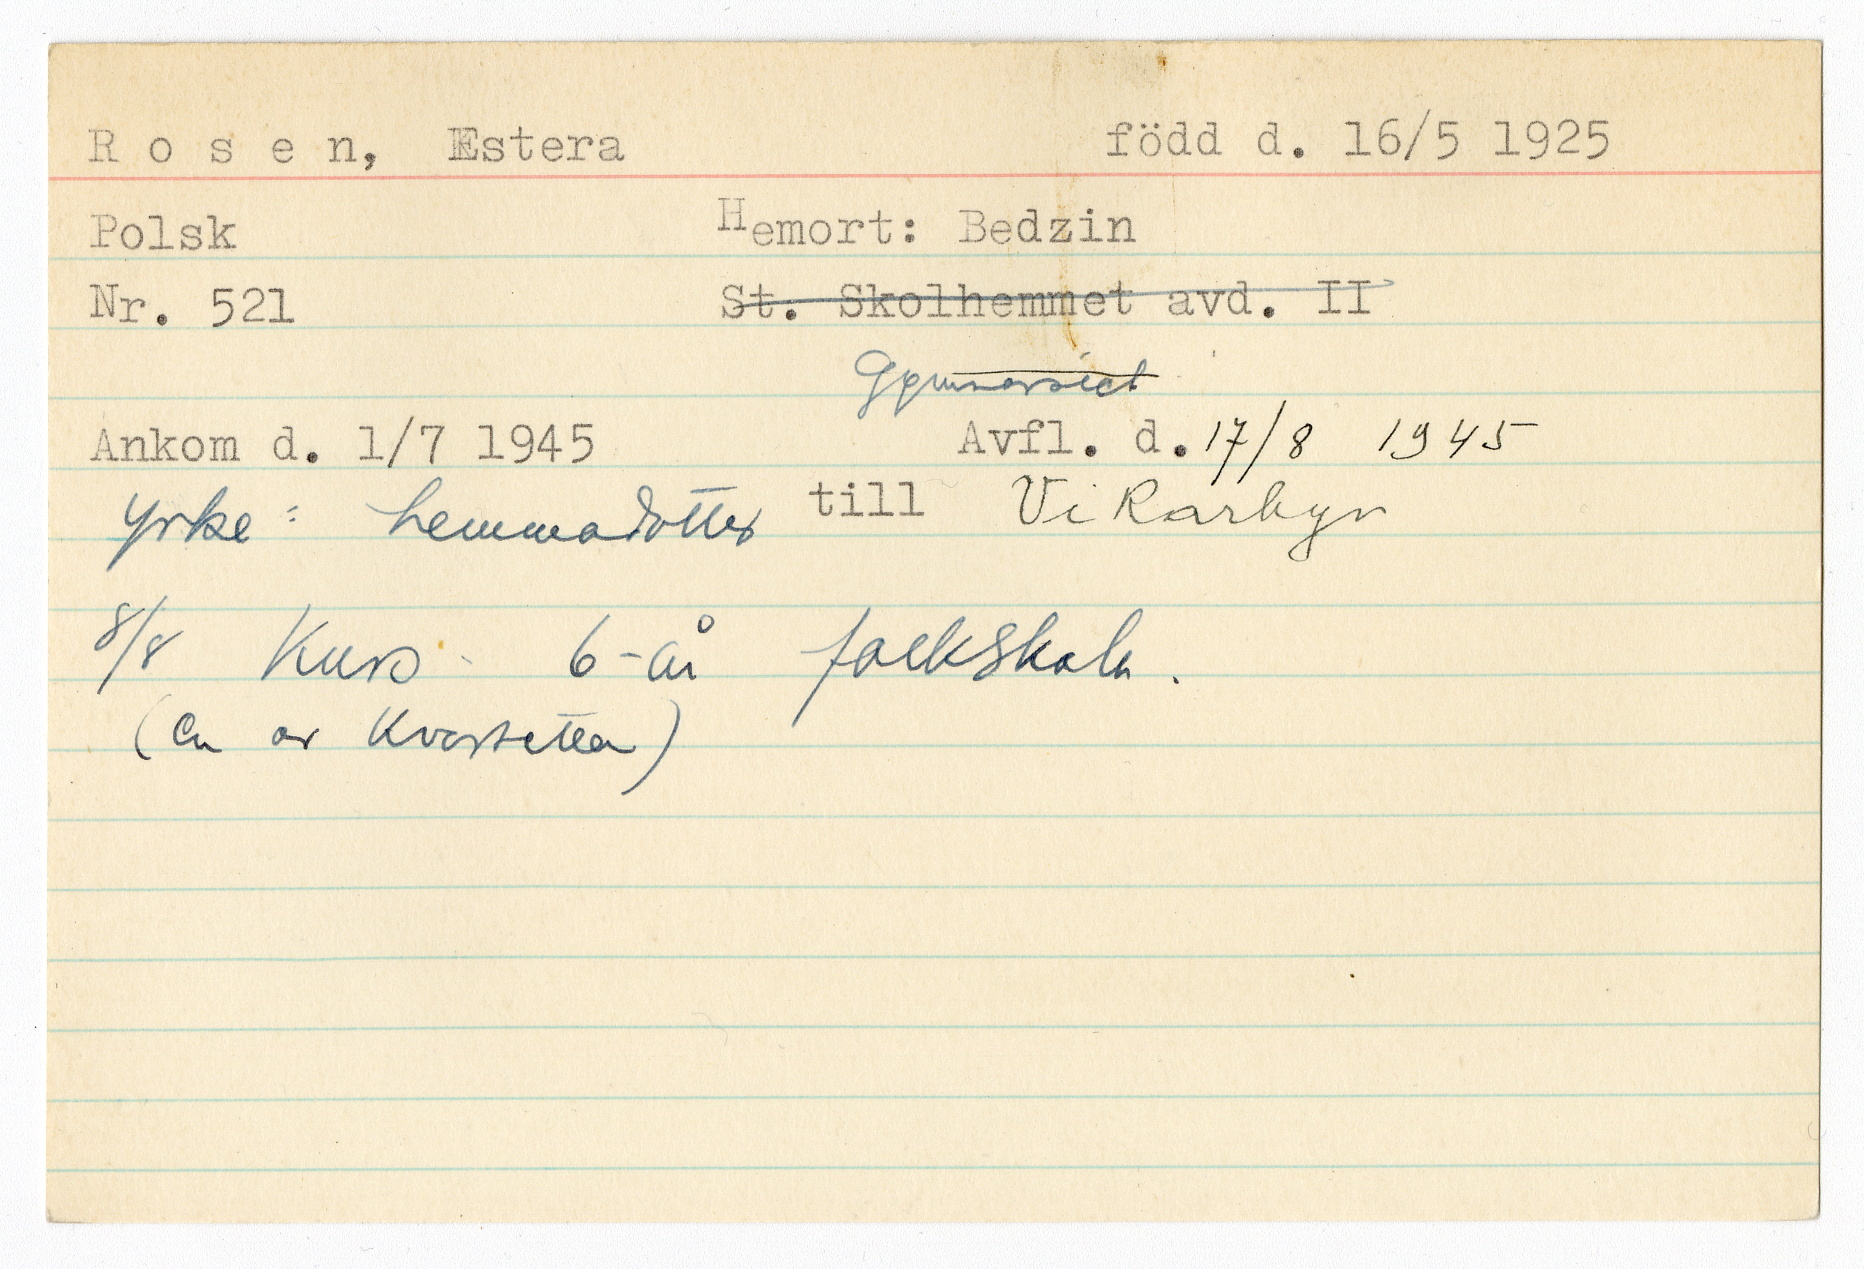 Rosen, Estera född d. 16/5 1925
Polsk Hemort: Bedzin
Nr. 521 St. Skolhemmet avd. II
Gymnasiet
Ankom d. 1/7 1945 Avfl. d. 17/8 1945
Yrke: hemmadotter till Vikarbyn
8/8 Kurs. 6-år folkskola.
(En av kvartetten)